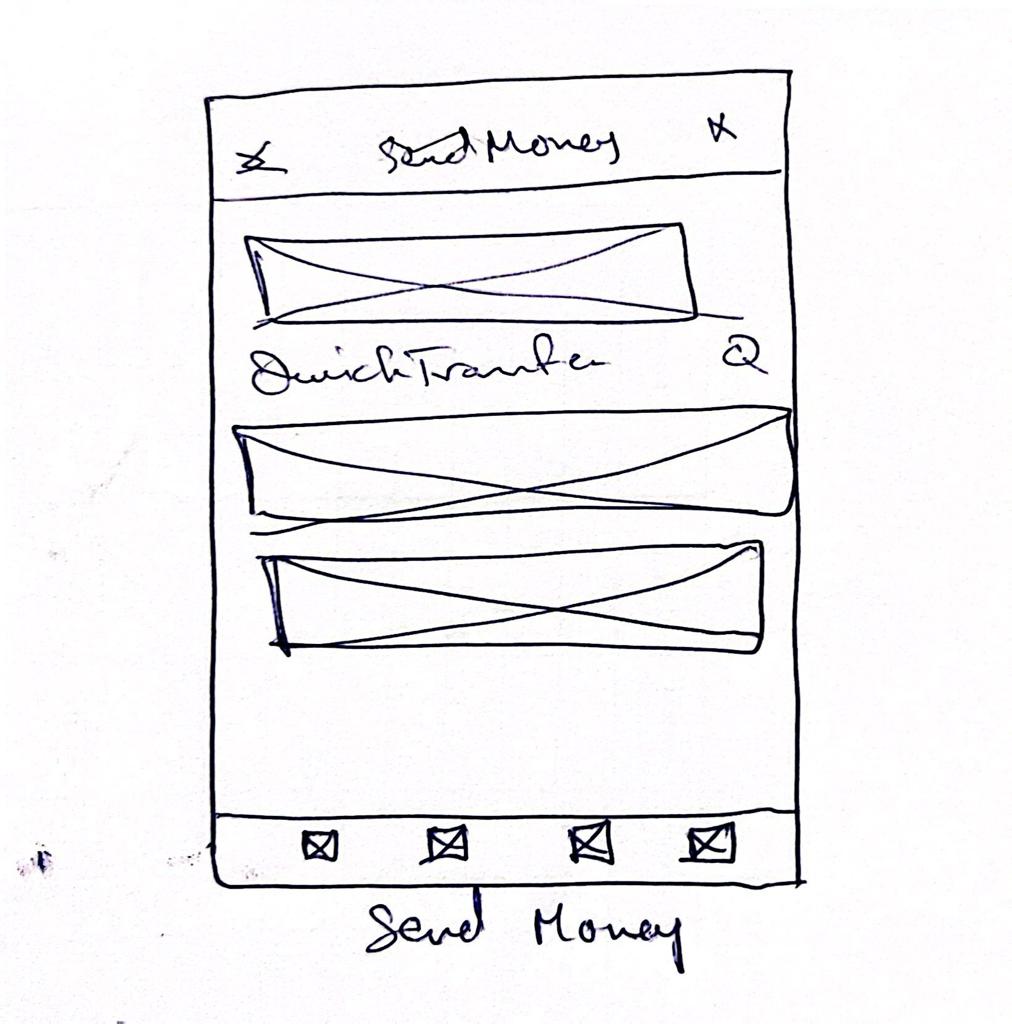 Send Money
Quick Transfer
Send Money